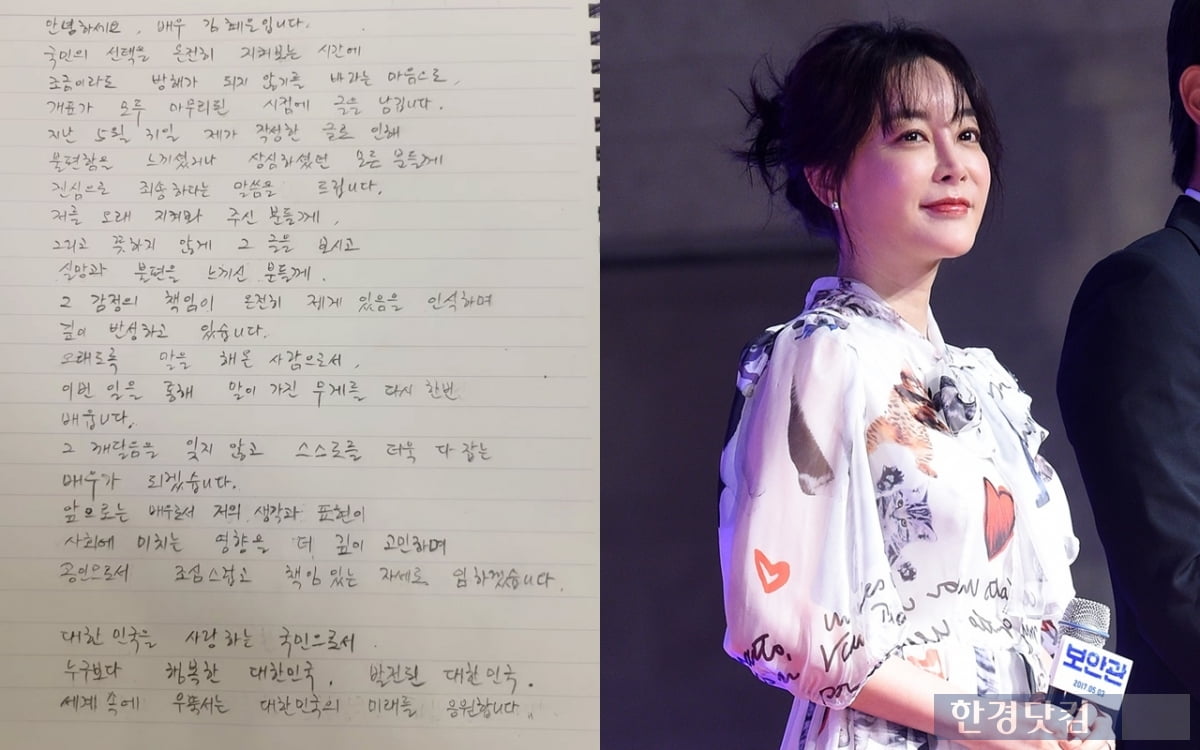 안녕하세요, 배우 김혜은입니다.
국민의 선택을 온전히 지켜보는 시간에
조금이라도 방해가 되지 않기를 바라는 마음으로,
개표가 모두 마무리된 시점에 글을 남깁니다.
지난 5월 31일 제가 작성한 글로 인해
불편함을 느끼셨거나 상심하셨던 모든 분들께
진심으로 죄송하다는 말씀을 드립니다.
저를 오래 지켜봐 주신 분들께,
그리고 뜻하지 않게 그 글을 보시고
실망과 불편을 느끼신 분들께.
그 감정의 책임이 온전히 제게 있음을 인식하며
깊이 반성하고 있습니다.
오래도록 말을 해온 사람으로서,
이번 일을 통해 말이 가진 무게를 다시 한번
배웁니다.
그 깨달음을 잊지 않고 스스로를 더욱 다 잡는
배우가 되겠습니다.
앞으로는 배우로서 저의 생각과 표현이
사회에 미치는 영향을 더 깊이 고민하며
공인으로서 조심스럽고 책임 있는 자세로 임하겠습니다.
대한민국을 사랑하는 국민으로서
누구보다 행복한 대한민국, 발전된 대한민국.
세계 속에 우뚝서는 대한민국의 미래를 응원합니다.
보안관
2017.05.03
한경닷컴